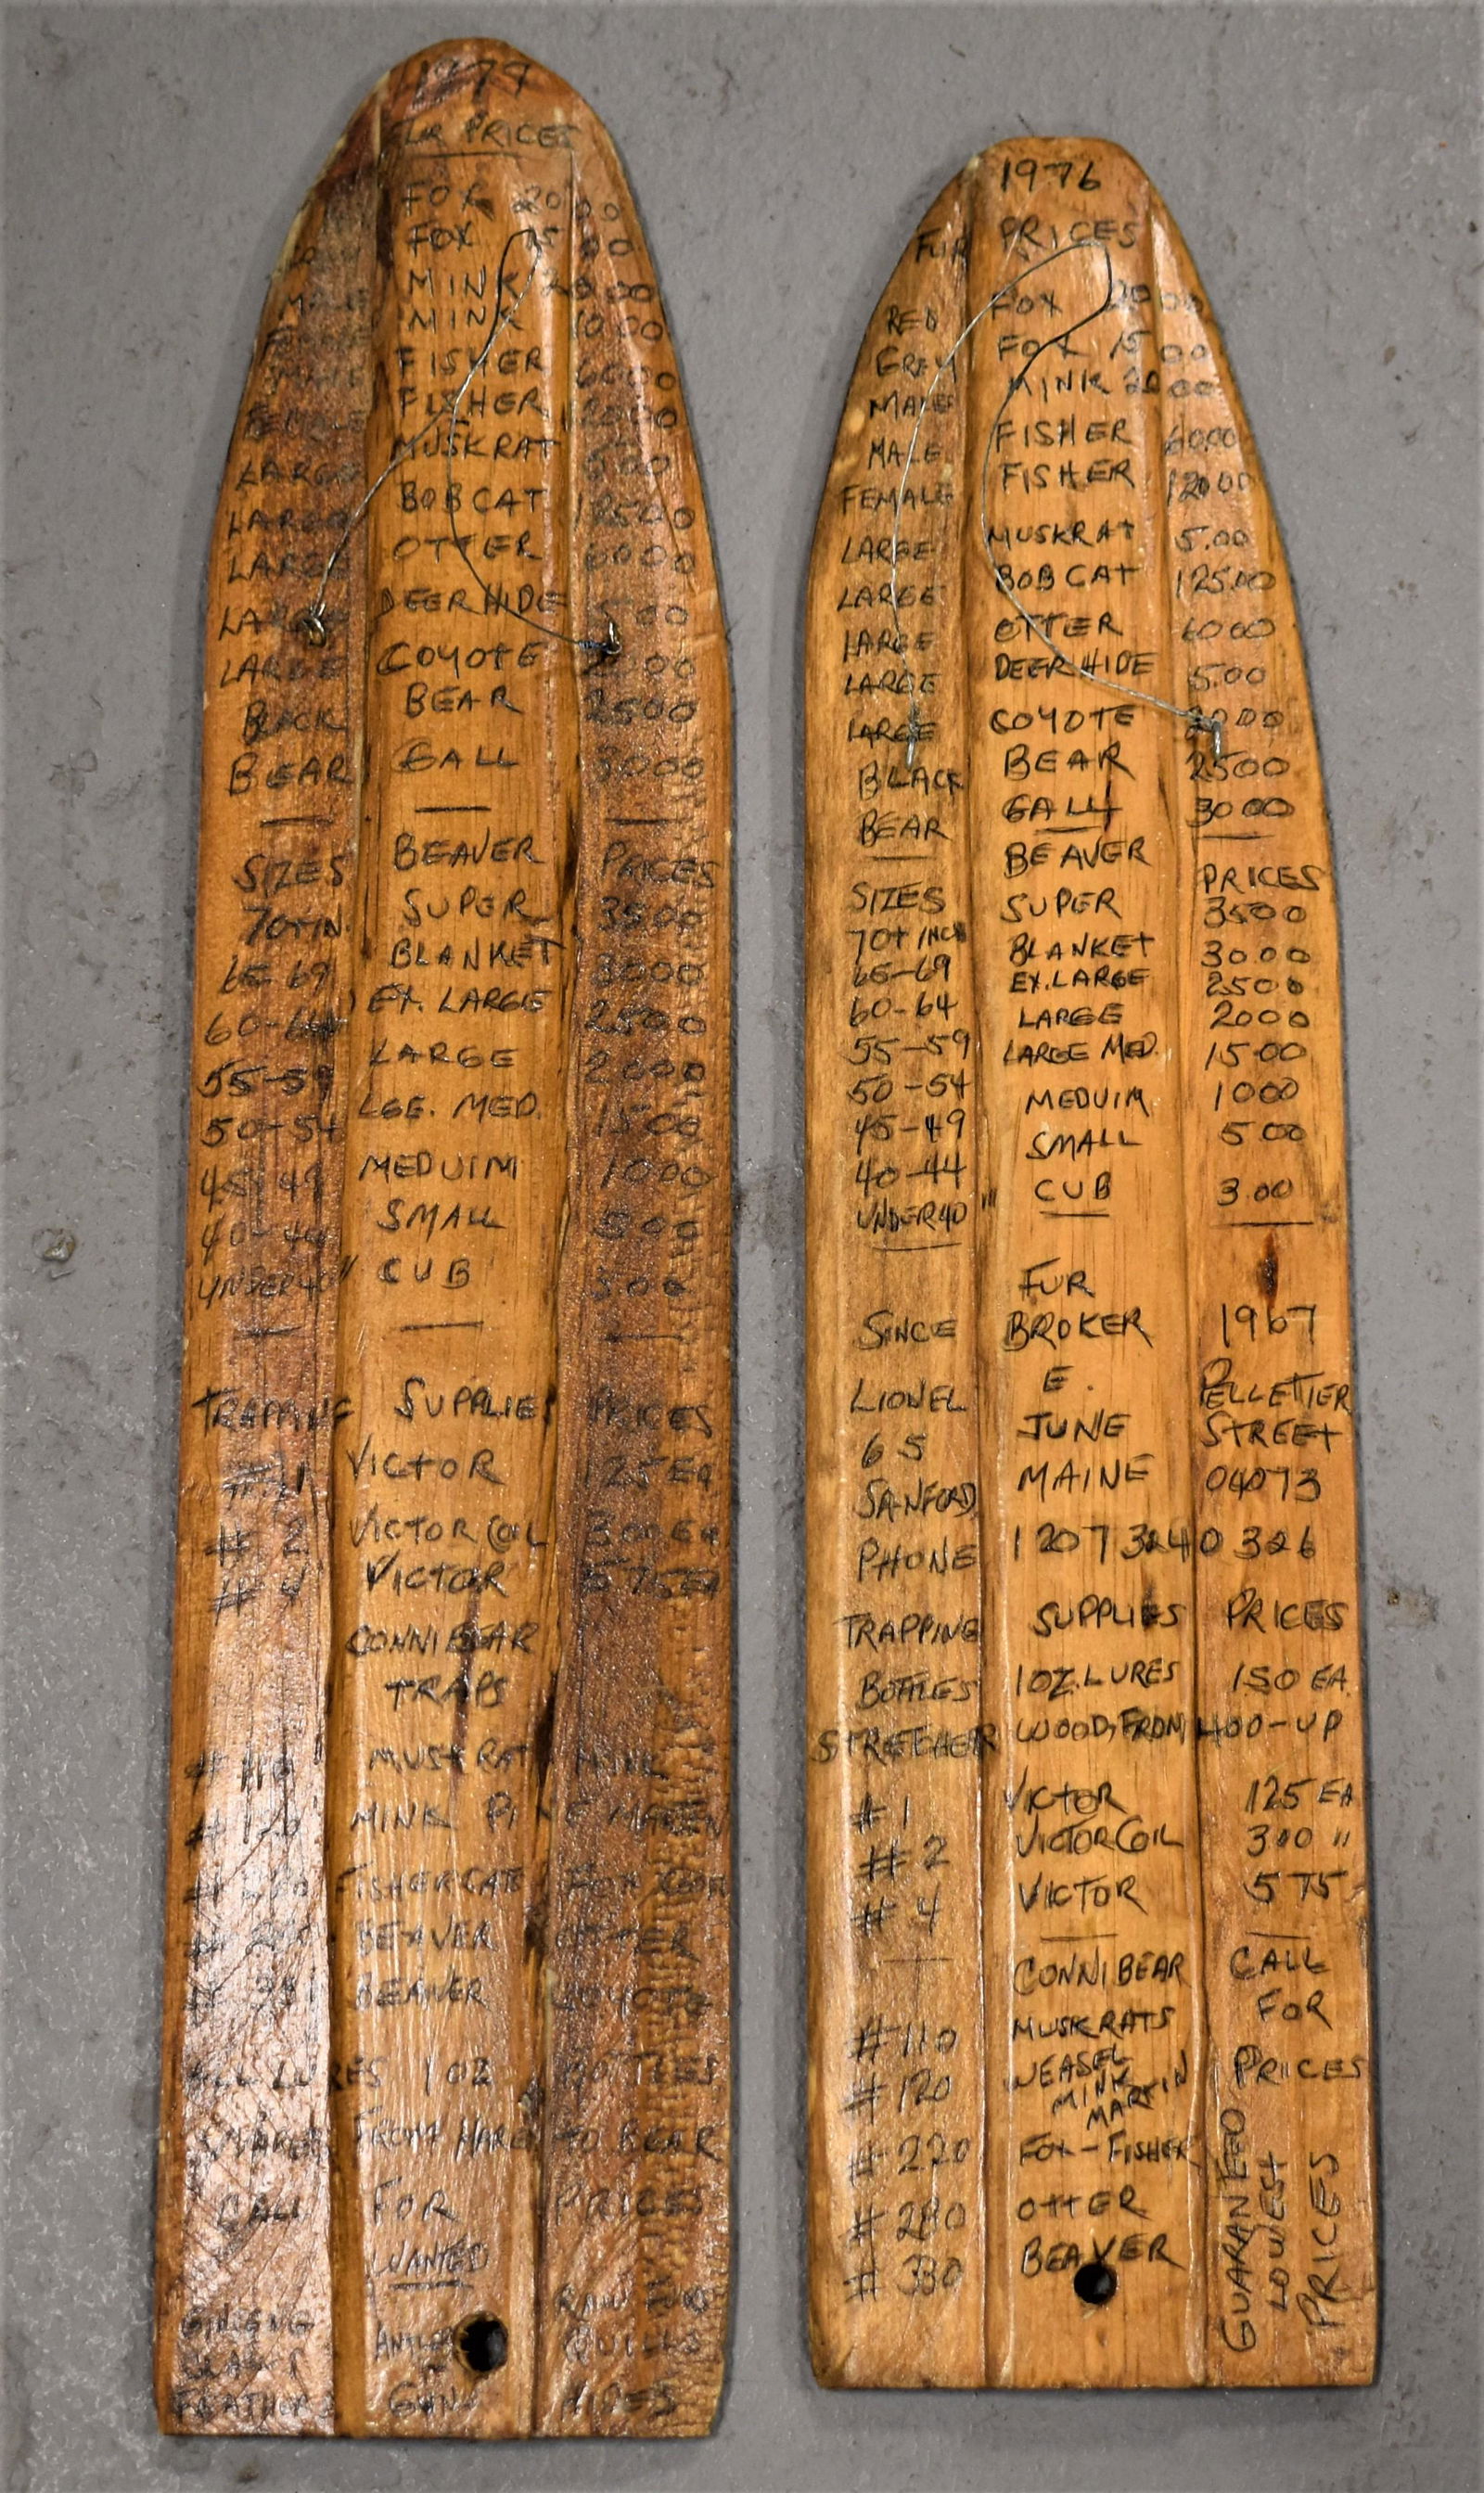 FUR PRICES
FOX 20 00
FOX 15 00
MINK 20 00
MINK 10 00
FISHER 60 00
FEMALE FISHER 120 00
LARGE MUSKRAT 5 00
LARGE BOBCAT 125 00
LARGE OTTER 60 00
LARGE DEER HIDE 5 00
LARGE COYOTE 00
BLACK BEAR 25 00
BEAR GALL 30 00
SIZES BEAVER PRICES
70+IN. SUPER 35 00
65-69 BLANKET 30 00
60-64 EX. LARGE 25 00
55-59 LARGE 20 00
50-54 LGE. MED. 15 00
45-49 MEDUIM 10 00
40-44 SMALL 5 00
UNDER 40" CUB 3.00
TRAPPING SUPPLIES PRICES
VICTOR 125 EA
# 2 VICTOR COIL 3 00 EA
# 4 VICTOR 575 EA
CONNIBEAR
TRAPS
# 110 MUSKRAT MINK
# 120 MINK
FISHERCATS
BEAVER OTTER
BEAVER
LURES 1 OZ BOTTLES
SNARES FROM HARE TO BEAR
CALL FOR PRICES
WANTED
QUILLS
FEATHERS HIDES
1976
FUR PRICES
RED FOX 20 00
GREY FOX 15 00
MALE MINK 20 00
MALE FISHER 60.00
FEMALE FISHER 120 00
LARGE MUSKRAT 5.00
LARGE BOBCAT 125.00
LARGE OTTER 60 00
LARGE DEER HIDE 5.00
LARGE COYOTE 20 00
BLACK BEAR 25 00
BEAR GALL 30 00
SIZES BEAVER PRICES
70+ INCH SUPER 35 00
65-69 BLANKET 30.00
60-64 EX.LARGE 25 00
55-59 LARGE 20 00
50-54 LARGE MED. 15 00
45-49 MEDUIM 10 00
40-44 SMALL 5 00
UNDER 40" CUB 3.00
FUR
SINCE BROKER 1967
LIONEL E. PELLETIER
65 JUNE STREET
SANFORD, MAINE 04073
PHONE 1 207 324 0326
TRAPPING SUPPLIES PRICES
BOTTLES 1 OZ. LURES 150 EA.
STRETCHER WOOD, FROM 400-UP
#1 VICTOR 125 EA
#2 VICTOR COIL 300 "
#4 VICTOR 575
CONNIBEAR CALL
FOR
#110 MUSKRATS
#120 WEASEL PRICES
MINK
MARTIN
#220 FOX-FISHER
#280 OTTER
#330 BEAVER
GUARANTEED
LOWEST
PRICES